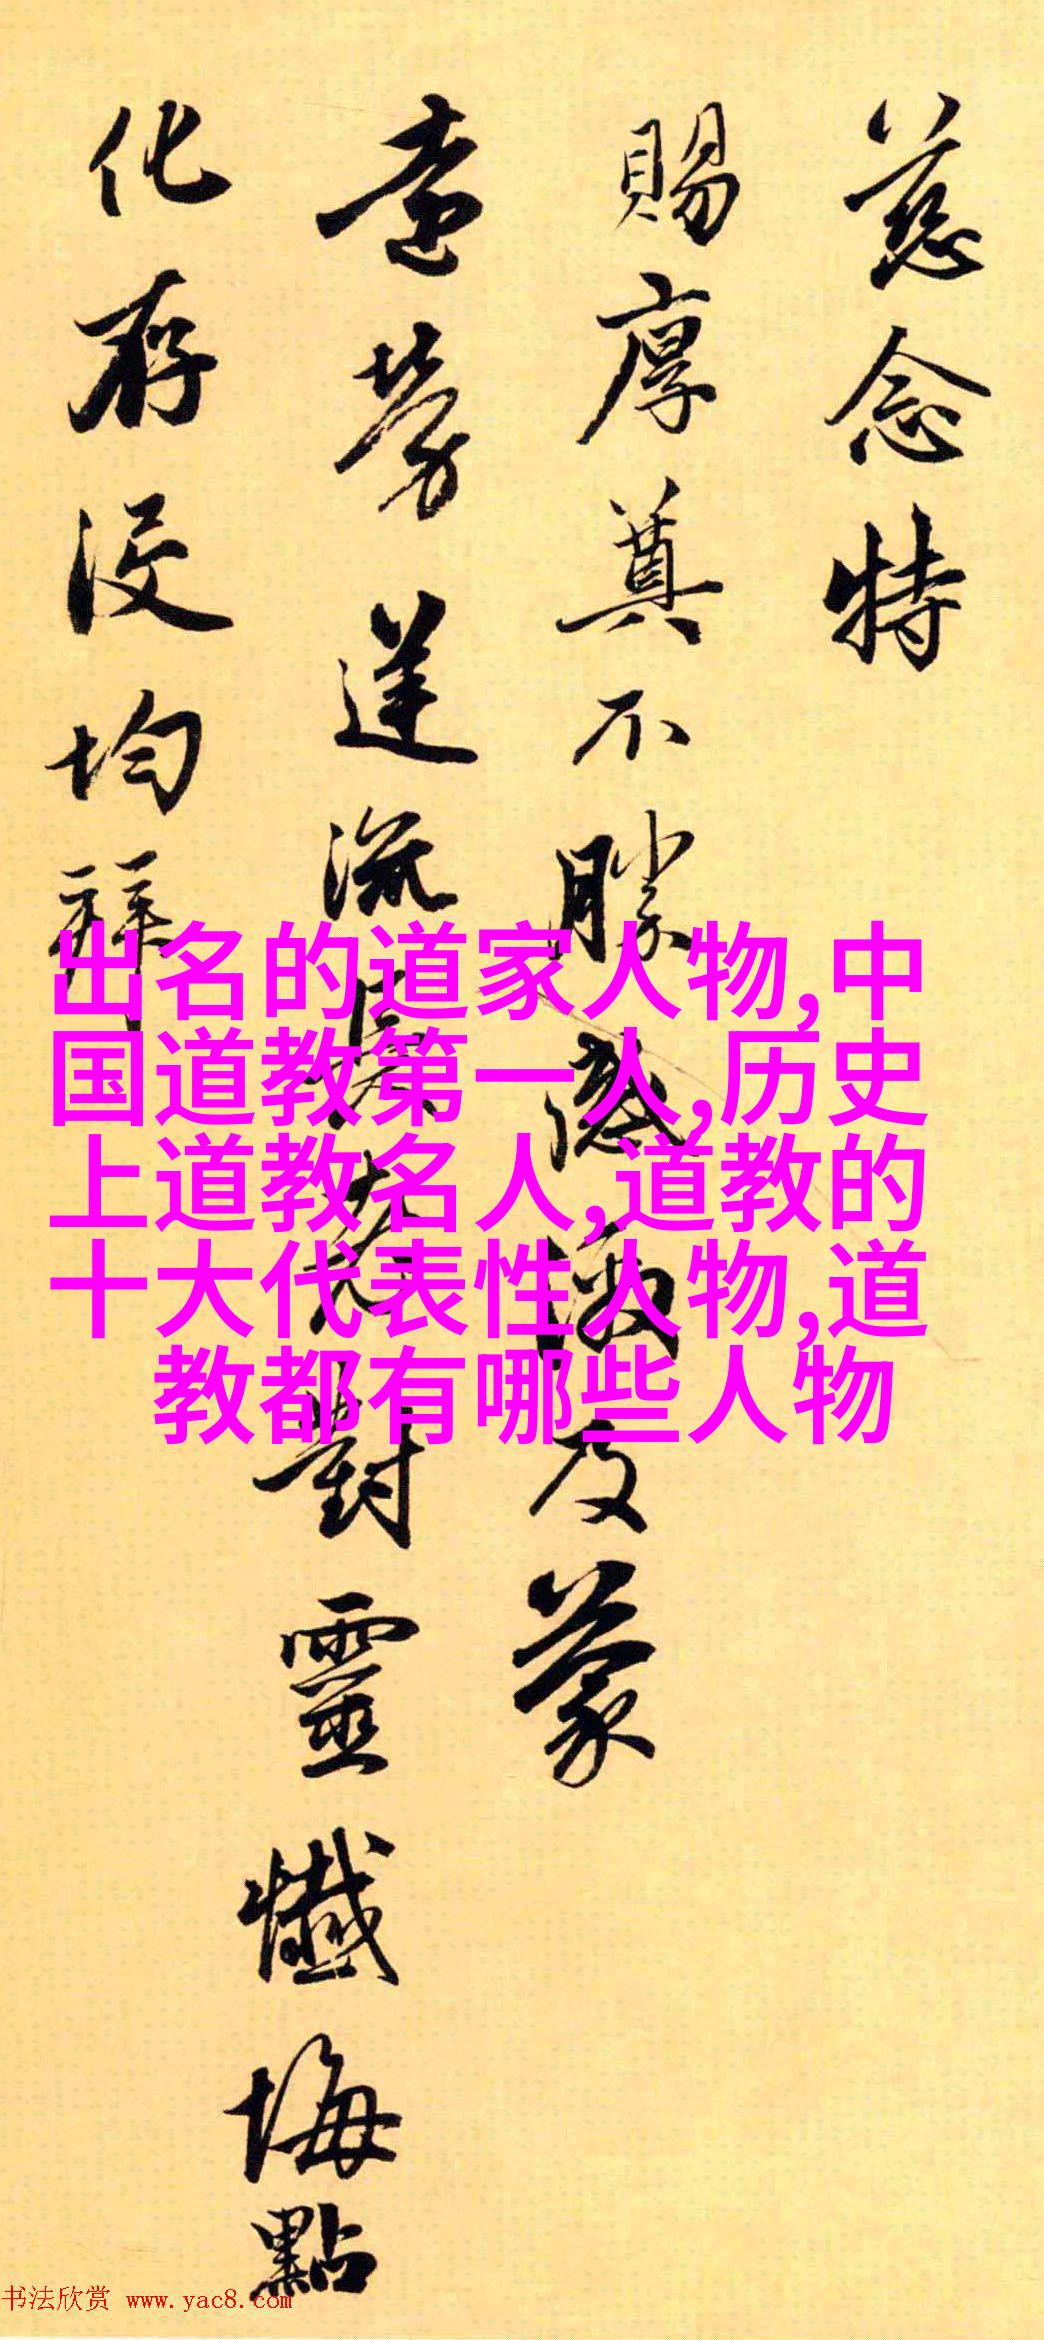 慈念特
賜厚奠不勝感激及蒙
遠勞送流對靈懺悔點
化存没均拜
出名的道家人物,中
国道教第一人,历史
上道教名人,道教的
十大代表性人物,道
教都有哪些人物
书法欣赏 www.yac8.com